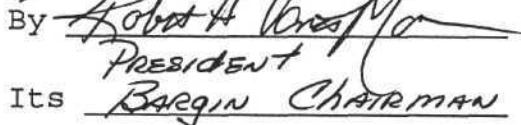 By Robert H
PRESIDENT
Its BARGIN CHAIRMAN